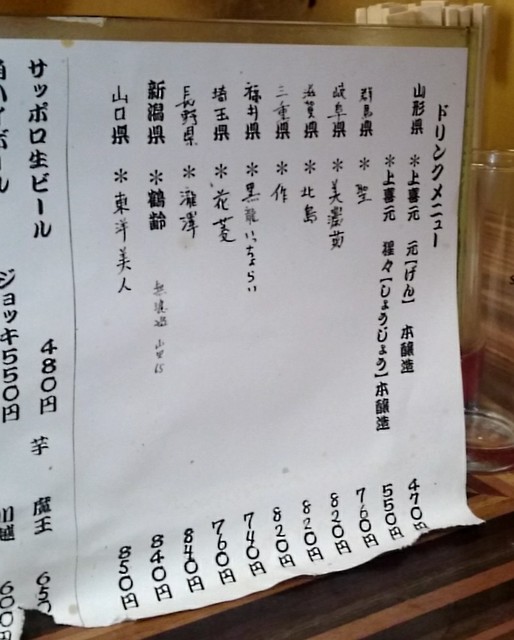 ドリンクメニュー
山形県 ＊上喜元 元【げん】 本醸造 470円
＊上喜元 猩々【しょうじょう】本醸造 550円
群馬県 ＊聖 760円
岐阜県 ＊美濃菊 820円
滋賀県 ＊北島 820円
三重県 ＊作 820円
福井県 ＊黒龍いっちょらい 740円
埼玉県 ＊花菱 760円
長野県 ＊瀧澤 840円
新潟県 ＊鶴齢 840円
山口県 ＊東洋美人 850円
サッポロ生ビール 480円 芋 魔王 650
ジョッキ550円 川越 600円